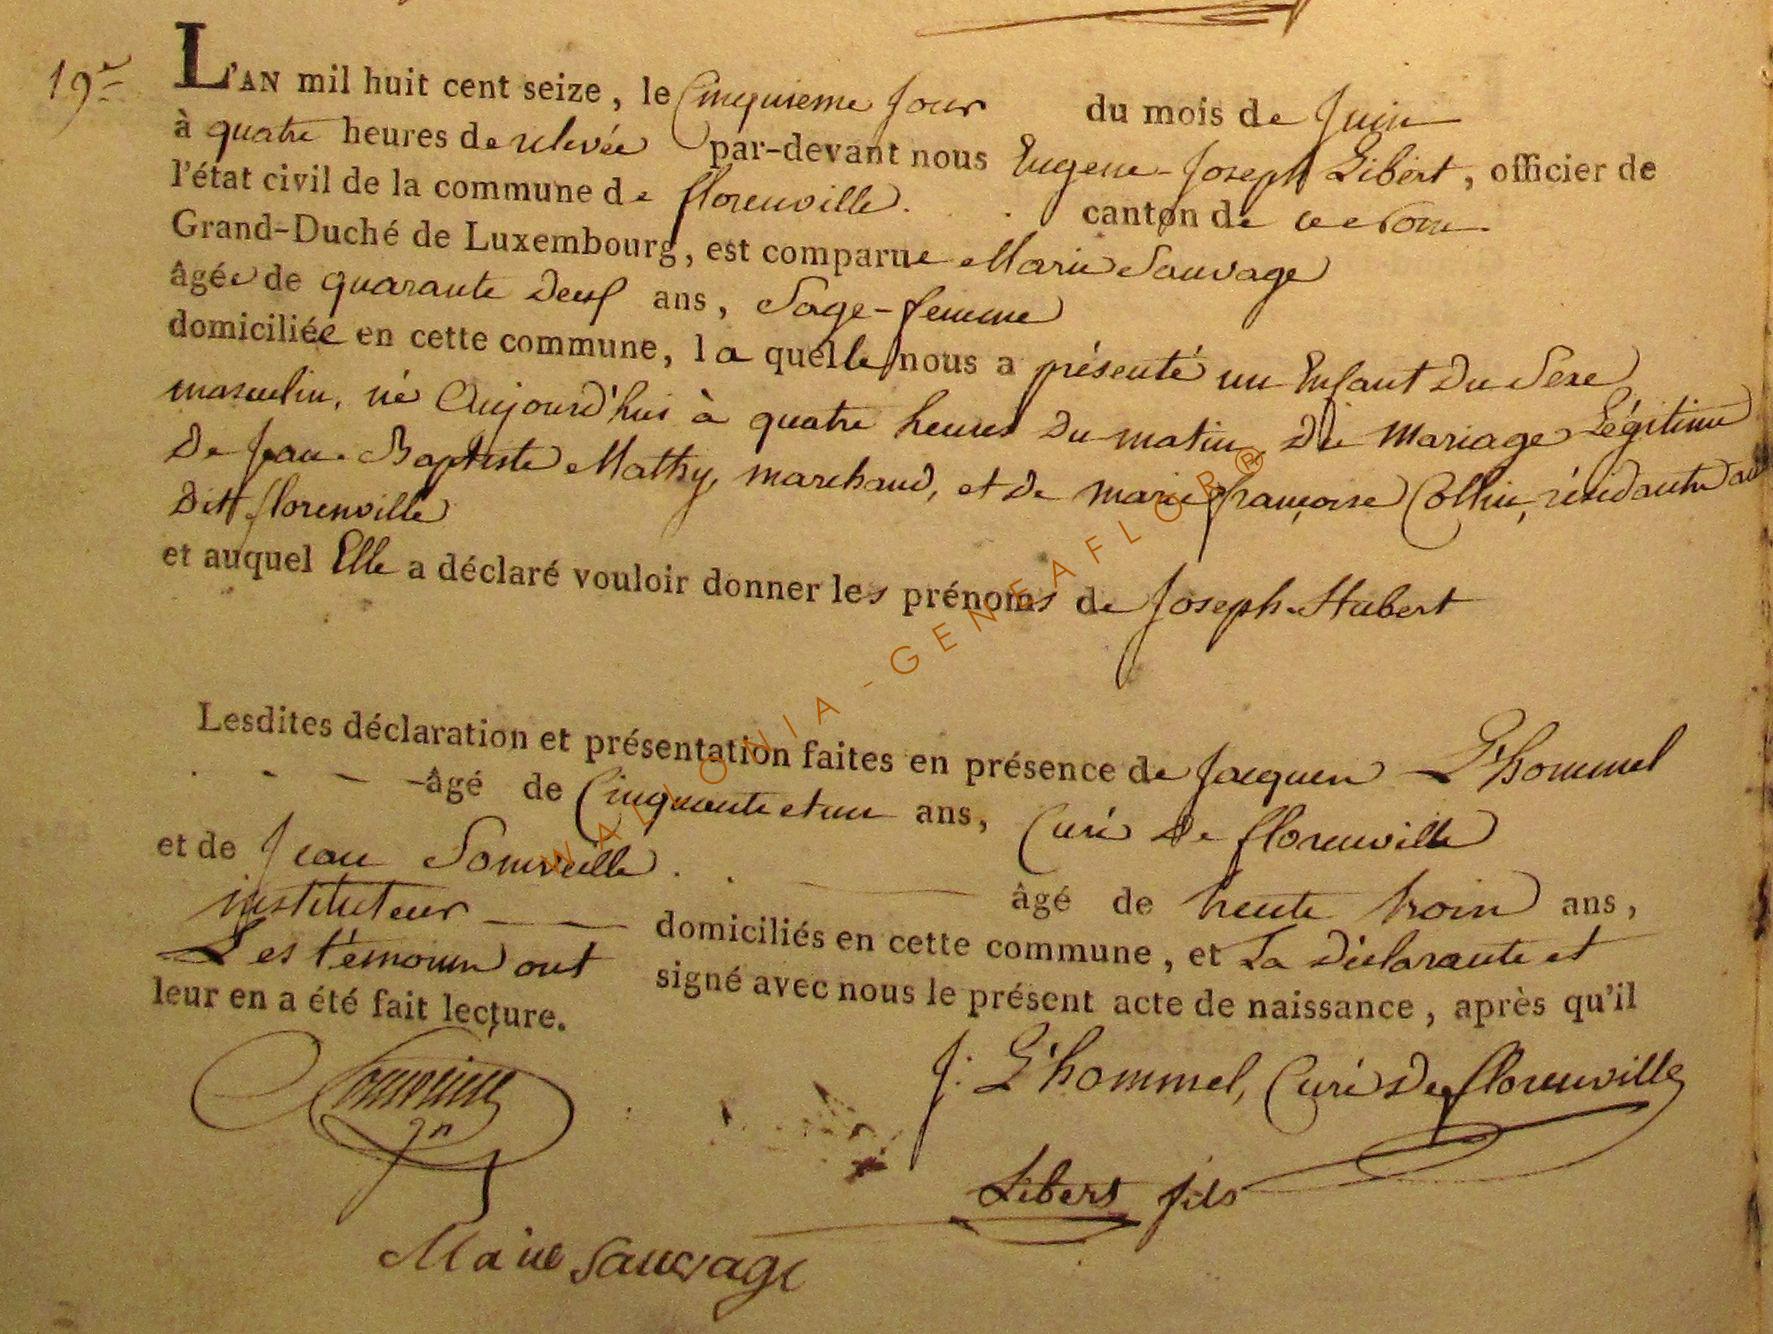 19e
L'AN mil huit cent seize, le Cinquieme Jour du mois de Juin
à quatre heures de relevée par-devant nous Eugene-Joseph Libert, officier de
l'état civil de la commune de florenville. canton de
Grand-Duché de Luxembourg, est comparue Marie Sauvage
âgée de quarante deux ans, Sage-femme
domiciliée en cette commune, la quelle nous a présenté un Enfant du Sexe
masculin, né Aujourd'hui à quatre heures du matin, du Mariage Légitime
De Jean-Baptiste Mathy, marchand, et de marie françoise Collin, résidante au
dit florenville
et auquel Elle a déclaré vouloir donner les prénoms de Joseph-Hubert
Lesdites déclaration et présentation faites en présence de Jacques L'hommel
âgé de Cinquante et un ans, Curé de florenville
et de Jean Somveille. âgé de trente trois ans,
instituteur domiciliés en cette commune, et La déclarante et
Les témoins ont signé avec nous le présent acte de naissance, après qu'il
leur en a été fait lecture.
J: L'hommel, Curé de florenville
Libert fils
Marie Sauvage
WALLONIA-GENEAFLOR®